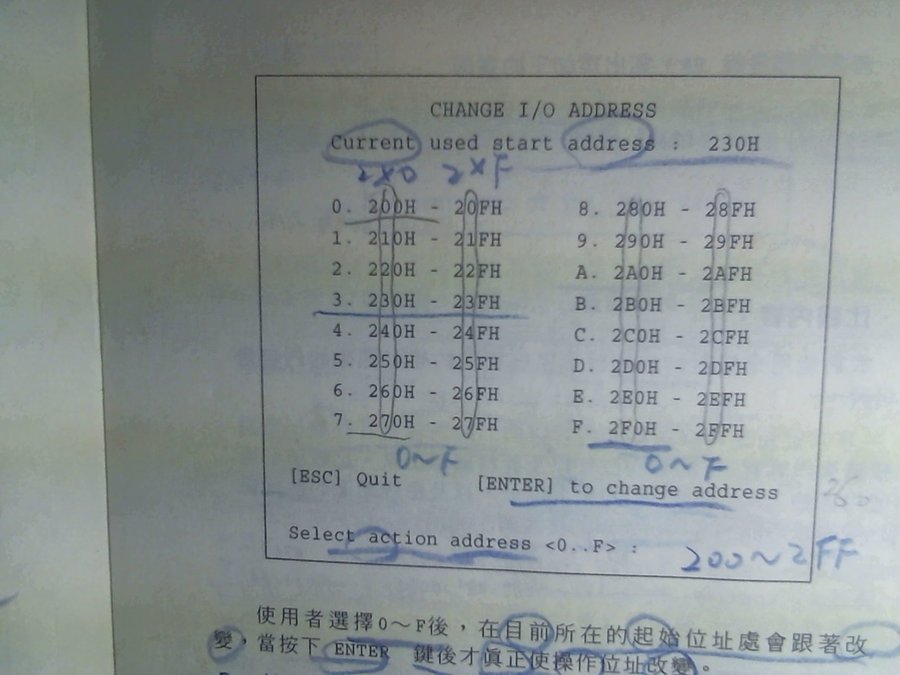 CHANGE I/O ADDRESS
Current used start address : 230H
2X0 2XF
0. 200H - 20FH 8. 280H - 28FH
1. 210H - 21FH 9. 290H - 29FH
2. 220H - 22FH A. 2A0H - 2AFH
3. 230H - 23FH B. 2B0H - 2BFH
4. 240H - 24FH C. 2C0H - 2CFH
5. 250H - 25FH D. 2D0H - 2DFH
6. 260H - 26FH E. 2E0H - 2EFH
7. 270H - 27FH F. 2F0H - 2FFH
0~F 0~F
[ESC] Quit [ENTER] to change address
Select action address <0..F> :
200~2FF
使用者選擇0～F後，在目前所在的起始位址處會跟著改
變，當按下 ENTER 鍵後才真正使操作位址改變。